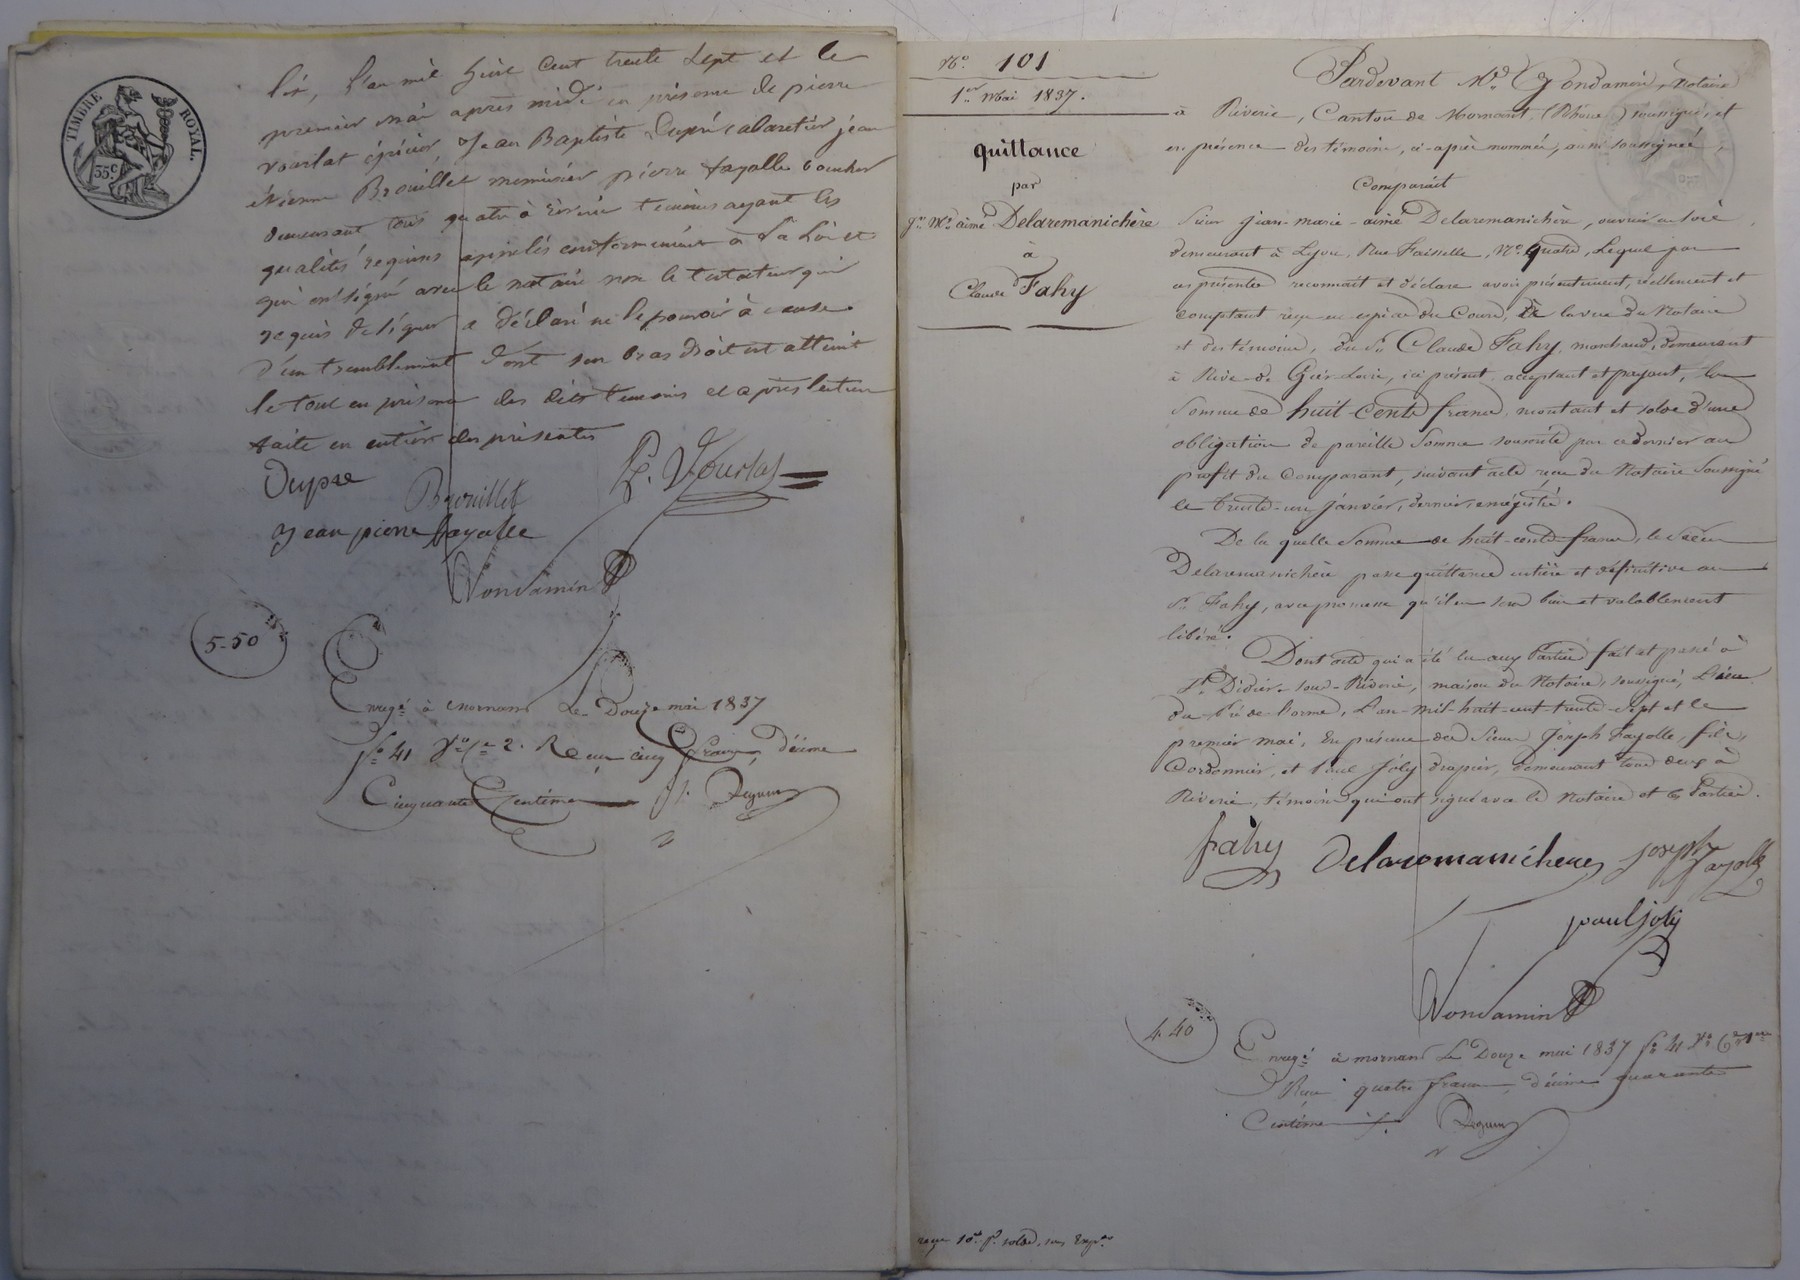 TIMBRE ROYAL.
35c.
lié, l'an mil huit cent trente sept et le
premier mai après midi en présence de pierre
vourlat épicier, Jean Baptiste Dupré cabaretier jean
étienne Brouillet menuisier pierre fayolle boucher
demeurant tous quatre à riverie temoins ayant les
qualités requises apelés conformément à la Loi et
qui ont signé avec le notaire non le testateur qui
requis de signer a déclaré ne le pouvoir à cause
d'un tremblement dont son bras droit est atteint
le tout en présence des dits temoins et après lecture
faite en entier des présentes
Dupre
Brouillet
P. Vourlat
Jean pierre fayolle
Gondamin
5-50
Enregé à mornant Le Douze mai 1837
fo 41 Vo Ce 2. Reçu cinq francs, décime
Cinquante Centimes
No 101
1er Mai 1837.
quittance
par
Jn Me aimé Delaremanichère
à
Claude Fahy
Pardevant Me Gondamin, Notaire
à Riverie, Canton de Mornant, (Rhône) soussigné, et
en présence des témoins, ci-après nommés, aussi soussignés,
Comparait
Sieur jean-marie-aimé Delaremanichère, ouvrier en soie
demeurant à Lyon, Rue Faiselle, No quatre, Lequel par
ces présentes reconnait et déclare avoir présentement, réellement et
comptant reçu en espèces du Cours, à la vue du Notaire
et des témoins, du Sr Claude Fahy, marchand, demeurant
à Rive-de Gier Loire, ici présent acceptant et payant, la
Somme de huit-cents francs, montant et solde d'une
obligation de pareille Somme souscrite par ce dernier au
profit du Comparant, suivant acte reçu du Notaire Soussigné
le trente-un janvier, dernier, enregistré.
De la quelle Somme de huit-cents francs, le Sieur
Delaremanichère passe quittance entière et définitive au
Sr Fahy, avec promesse qu'il en sera bien et valablement
libéré.
Dont acte qui a été lu aux Parties fait et passé à
St Didier-sous-Riverie, maison du Notaire, soussigné, Lieu
du Pré de Lorme, L'an-mil-huit-cent-trente-sept et le
premier mai, En présence des Sieurs Joseph Fayolle, fils,
Cordonnier, et Paul Joly drapier, demeurant tous deux à
Riverie, témoins qui ont signé avec le Notaire et les Parties.
fahy
Delaromanichere
joseph fayolle
paul joly
Gondamin
4-40
Enregé à mornant Le Douze mai 1837 fo 41 Vo
Reçu quatre francs, décime quarante
Centimes